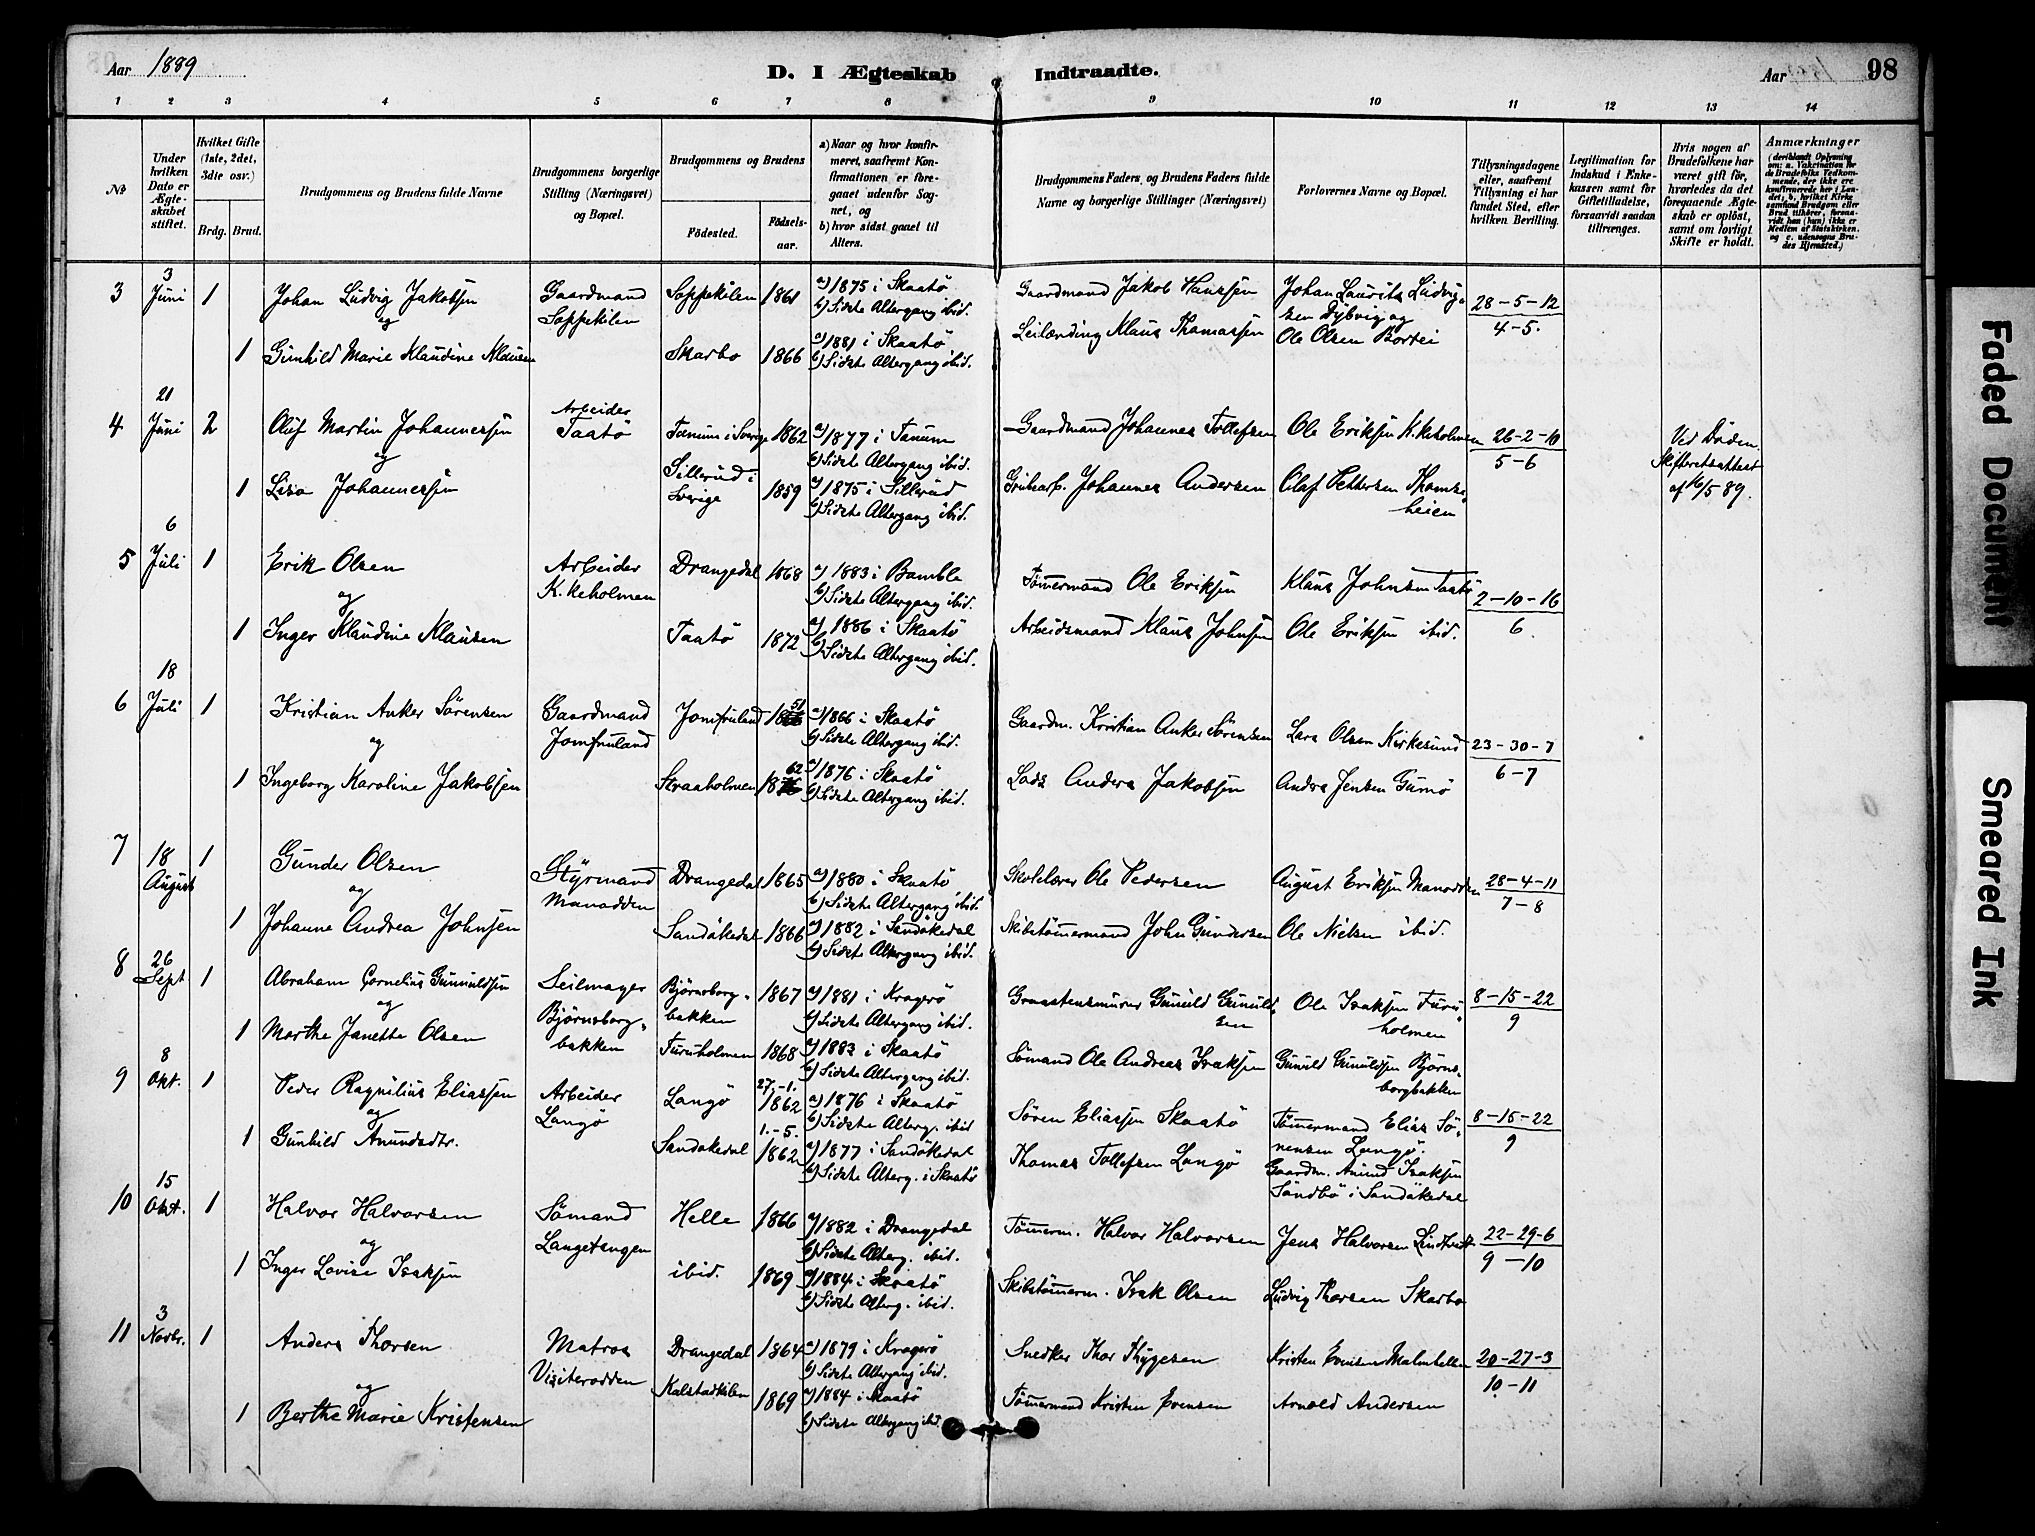 Aar 1889
D. I Ægteskab Indtraadte.
Aar
98
1 2 3 4 5 6 7 8 9 10 11 12 13 14
No
Under hvilken Dato er Ægteskabet stiftet.
Hvilket Gifte (1ste, 2det, 3die osv.)
Brdg. Brud.
Brudgommens og Brudens fulde Navne
Brudgommens borgerlige Stilling (Næringsvei) og Bopæl.
Brudgommens og Brudens
Fødested.
Fødselsaar.
a) Naar og hvor konfirmeret, saafremt Konfirmationen er foregaaet udenfor Sognet, og
b) hvor sidst gaaet til Alters.
Brudgommens Faders og Brudens Faders fulde Navne og borgerlige Stillinger (Næringsvei)
Forlovernes Navne og Bopæl.
Tillysningsdagene eller, saafremt Tillysning ei har fundet Sted, efter hvilken Bevilling.
Legitimation for Indskud i Enkekassen samt for Giftetilladelse, forsaavidt saadan tiltrænges.
Hvis nogen af Brudefolkene har været gift før, hvorledes da det foregaaende Ægteskab er opløst, samt om lovligt Skifte er holdt.
Anmærkninger (deriblandt Oplysning om: a. Vakcination for de Brudefolks Vedkommende, der ikke ere konfirmerede her i Landet; b. hvilket Kirkesamfund Brudgom eller Brud tilhører, forsaavidt han (hun) ikke er Medlem af Statskirken, og c. udensogns Brudes Hjemsted.)
3 3 Juni 1 Johan Ludvig Jakobsen Gaardmand Soppekilen Soppekilen 1861 a) 1875 i Skaatö b) Sidste Altergang ibid. Gaardmand Jakob Hanssen Johan Laurits Ludvigsen Dybvig og 28-5-12
og
1 Gunhild Marie Klaudine Klausen Skarbo 1866 a) 1881 i Skaatö b) Sidste Altergang ibid. Leilænding Klaus Thomassen Ole Olsen Bortei 4-5.
4 21 Juni 2 Oluf Martin Johannessen Arbeider Taatö Tanum i Sverige 1862 a) 1877 i Tanum b) Sidste Altergang ibid. Gaardmand Johannes Tollefsen Ole Eriksen K.keholmen 26-2-10 Ved Döden.
og
1 Lisa Johannessen Sillerud i Sverige 1859 a) 1875 i Sillerud b) Sidste Altergang ibid. Grubearb. Johannes Andersen Olaf Pettersen Thomseheien 5-6 Skifteretsattest af 16/5 89.
5 6 Juli 1 Erik Olsen Arbeider K.keholmen Drangedal 1868 a) 1883 i Bamble b) Sidste Altergang ibid. Tømmermand Ole Eriksen Klaus Johnsen Taatö 2-10-16
og
1 Inger Klaudine Klausen Taatö 1872 a) 1886 i Skaatö b) Sidste Altergang ibid. Arbeidsmand Klaus Johnsen Ole Eriksen ibid. 6.
6 18 Juli 1 Kristian Anker Sörensen Gaardmand Jomfruland Jomfruland 1851 a) 1866 i Skaatö b) Sidste Altergang ibid. Gaardm. Kristian Anker Sörensen Lars Olsen Kirkesund 23-30-7
og
1 Ingeborg Karoline Jakobsen Straaholmen 1862 a) 1876 i Skaatö b) Sidste Altergang ibid. Lods Anders Jakobsen Anders Jensen Gumö 6-7
7 18 August 1 Gunder Olsen Styrmand Manodden Drangedal 1865 a) 1880 i Skaatö b) Sidste Altergang ibid. Skolelærer Ole Pedersen August Eriksen Manodden 28-4-11
og
1 Johanne Andrea Johnsen Sandökedal 1866 a) 1882 i Sandökedal b) Sidste Altergang ibid. Skibstömmermand John Gundersen Ole Nielsen ibid. 7-8
8 26 Sept 1 Abraham Cornelius Gunuldsen Seilmager Björnsborgbakken Björnsborgbakken 1867 a) 1881 i Kragerö b) Sidste Altergang ibid. Graastensmurer Gunuld Gunuldsen Ole Isaksen Furuholmen 8-15-22
og
1 Marthe Janette Olsen Furuholmen 1868 a) 1883 i Skaatö b) Sidste Altergang ibid. Sömand Ole Andreas Isaksen Gunuld Gunuldsen Björnsborgbakken 9
9 8 Okt. 1 Peder Ragnilius Eliassen Arbeider Langö Langö 27.-1. 1862 a) 1876 i Skaatö b) Sidste Alterg. ibid Sören Eliassen Skaatö Tömmermand Elias Sörensen Langö. 8-15-22
og
1 Gunhild Anundsdtr. Sandökedal 1.-5. 1862 a) 1877 i Sandökedal b) Sidste Alterg. i Skaatö Thomas Tollefsen Langö Gaardm. Anund Isaksen Sandbö i Sandökedal 9
10 15 Okt. 1 Halvor Halvorsen Sömand Langetangen Helle 1866 a) 1882 i Drangedal b) Sidste Alterg. ibid. Tömmerm. Halvor Halvorsen Jens Halvorsen 22-29-6
og
1 Inger Lovise Isaksen ibid. 1869 a) 1884 i Skaatö b) Sidste Alterg. ibid. Skibstömmerm. Isak Olsen Ludvig Thorsen Skarbo 9-10
11 3 Novbr. 1 Anders Thorsen Matros Visiterodden Drangedal 1864 a) 1879 i Kragerö b) Sidste Altergang ibid. Snedker Thor Thygesen Kristen Evensen Malmhellen 20-27-3
og
1 Berthe Marie Kristensen Kalstadkilen 1869 a) 1884 i Skaatö b) Sidste Altergang ibid Tömmermand Kristen Evensen Arnold Andersen 10-11
Faded Document
Smeared Ink